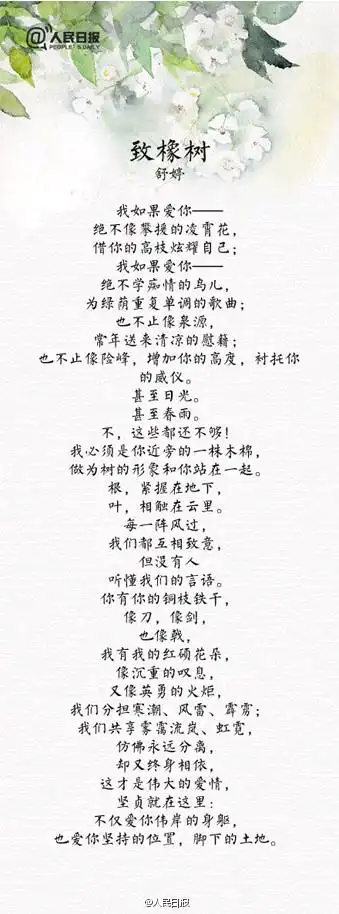 @人民日报
PEOPLE'S DAILY
致橡树
舒婷
我如果爱你——
绝不像攀援的凌霄花，
借你的高枝炫耀自己；
我如果爱你——
绝不学痴情的鸟儿，
为绿荫重复单调的歌曲；
也不止像泉源，
常年送来清凉的慰籍；
也不止像险峰，增加你的高度，衬托你
的威仪。
甚至日光。
甚至春雨。
不，这些都还不够！
我必须是你近旁的一株木棉，
做为树的形象和你站在一起。
根，紧握在地下，
叶，相触在云里。
每一阵风过，
我们都互相致意，
但没有人
听懂我们的言语。
你有你的铜枝铁干，
像刀，像剑，
也像戟，
我有我的红硕花朵，
像沉重的叹息，
又像英勇的火炬，
我们分担寒潮、风雷、霹雳；
我们共享雾霭流岚、虹霓，
仿佛永远分离，
却又终身相依，
这才是伟大的爱情，
坚贞就在这里：
不仅爱你伟岸的身躯，
也爱你坚持的位置，脚下的土地。
@人民日报